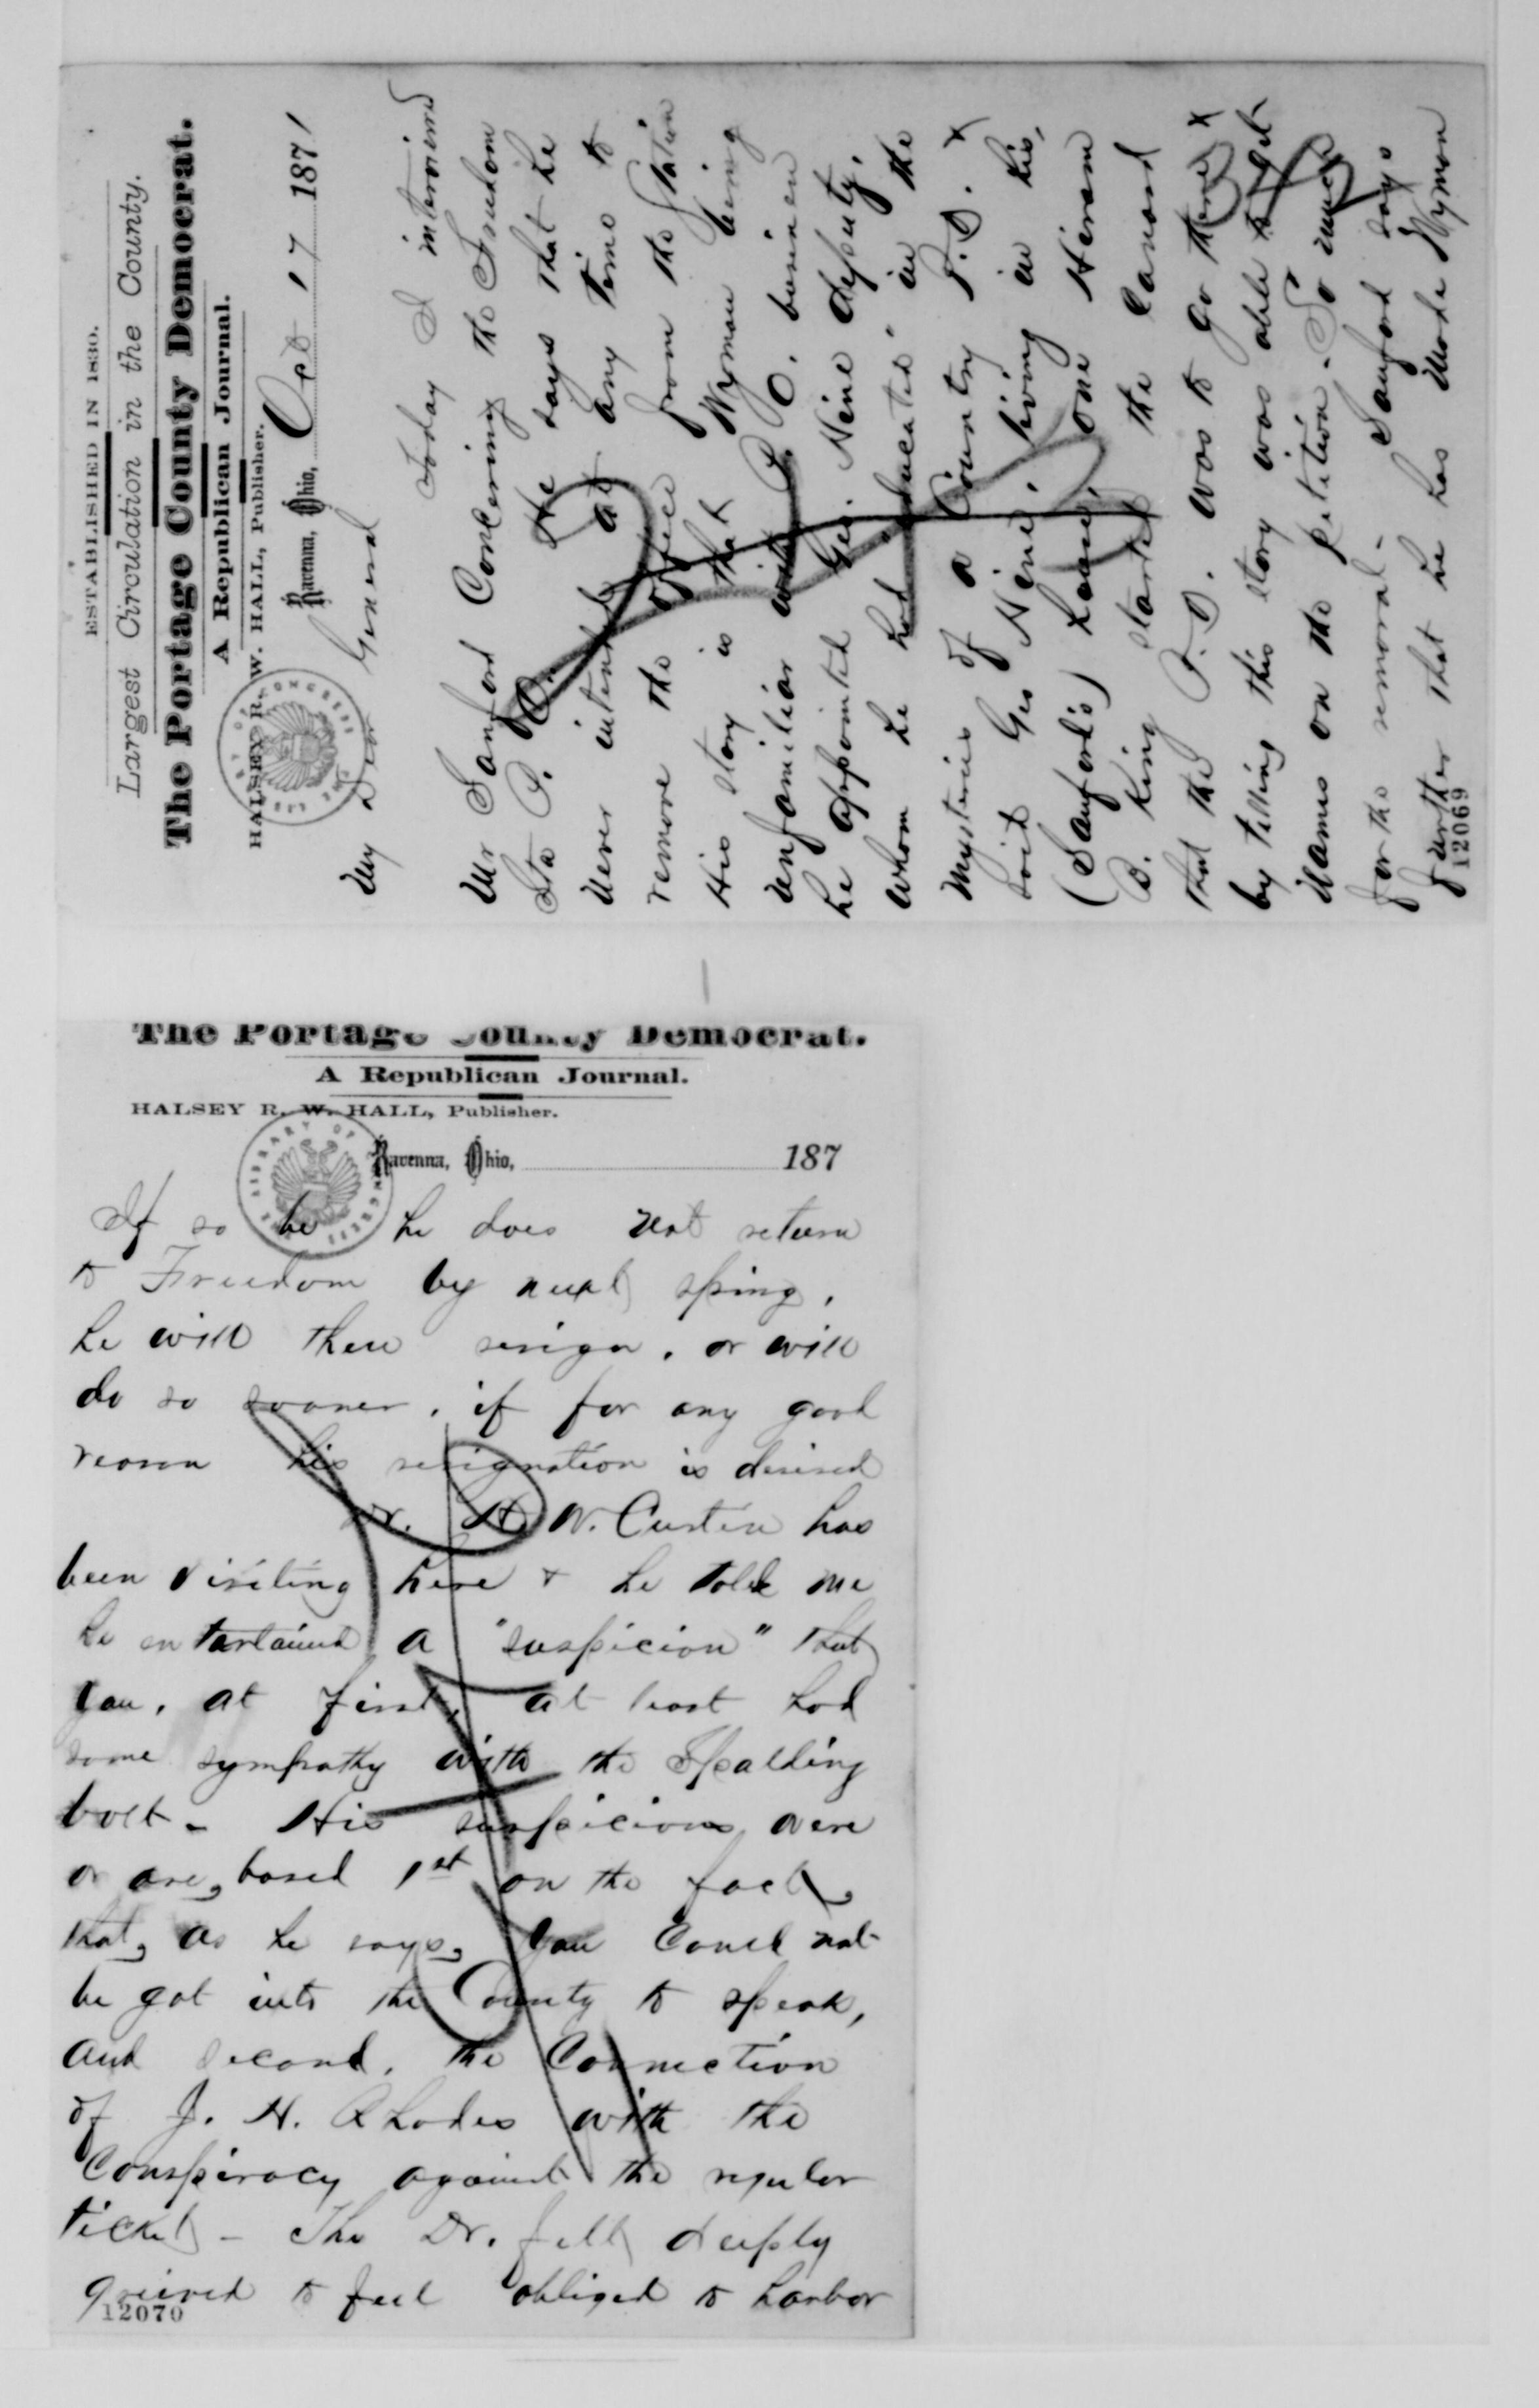 ESTABLISHED IN 1830.
Largest Circulation in the County.
The Portage County Democrat.
A Republican Journal.
HALSEY R. W. HALL, Publisher.
Ravenna, Ohio, Oct 17 1871
My Dear General
Today I interviewed
Mr Sanford Concerning the Freedom
Sta P. O. He says that he
never intended at any time to
remove the office from the Station
His story is that Wyman being
unfamiliar with P. O. business
he appointed Geo. Nine deputy,
whom he had "educated" in the
mysteries of a Country P.O. +
said Geo Nine, living in his,
(Sanford's) house, one Hiram
B. King started the canard
that the P.O. was to go there +
by telling this story was able to get
names on the petition. So much
for the removal. Sanford says
further that he has made Wyman
12069
The Portage County Democrat.
A Republican Journal.
HALSEY R. W. HALL, Publisher.
LIBRARY OF CONGRESS
Ravenna, Ohio, 187
If so be he does not return
to Freedom by next spring,
he will then resign, or will
do so sooner, if for any good
reason his resignation is desired
Dr. H W. Curtin has
been visiting here + he told me
he entertained a "suspicion" that
you, at first, at least had
some sympathy with the Spalding
bolt - His suspicions were
or are, based 1st on the fact,
that, as he says, you could not
be got into the County to speak,
and second, the Connection
of J. H. Rhodes with the
Conspiracy against the regular
ticket - The Dr. felt deeply
grieved to feel obliged to harbor
12070